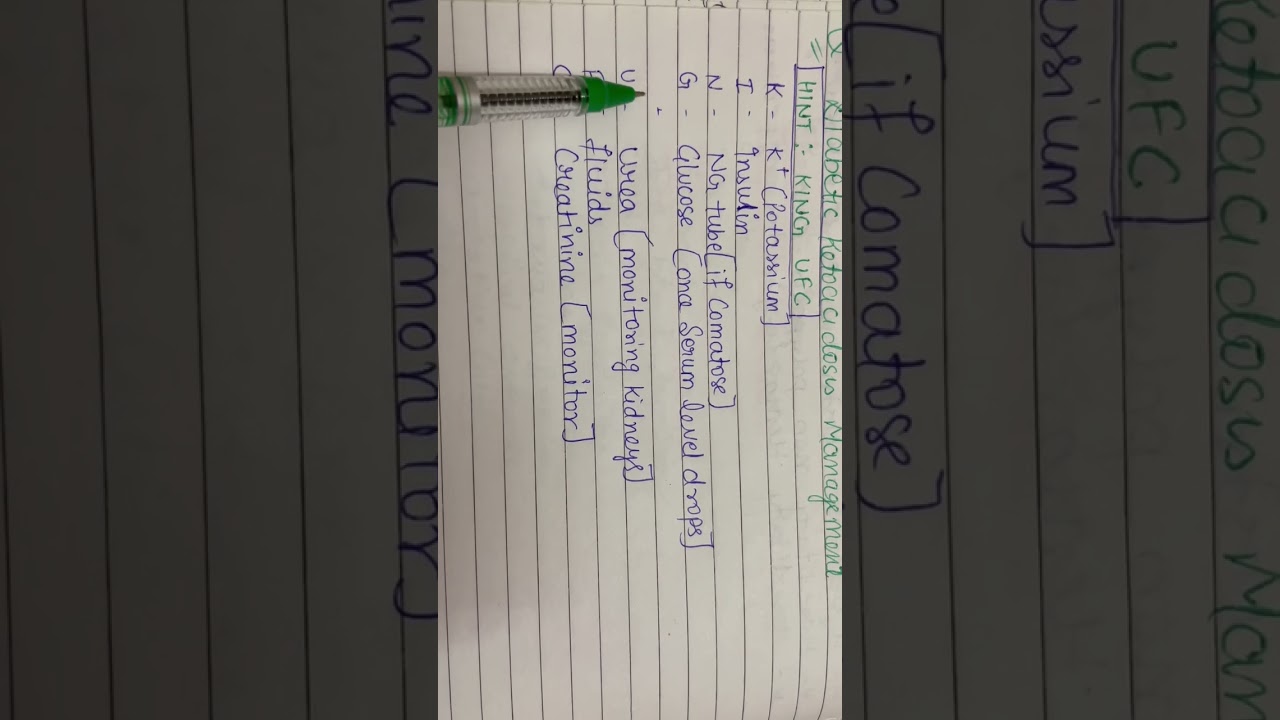 Diabetic Ketoacidosis Management
HINT: KING UFC
K - K+ (Potassium]
I - Insulin
N - NG tube [if Comatose]
G - Glucose [once Serum level drops]
U Urea [monitoring kidneys]
F Fluids
C Creatinine [monitor]